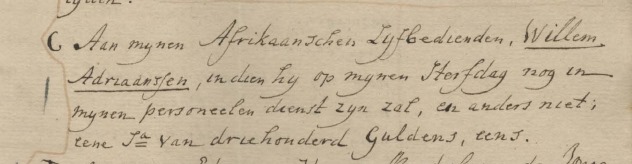 C Aan mynen Afrikaanschen Lyfbedienden, Willem
Adriaanssen, indien hy op mynen Sterfdag nog in
mynen personeelen dienst zyn zal, en anders niet;
eene Sa van driehonderd Guldens, eens.